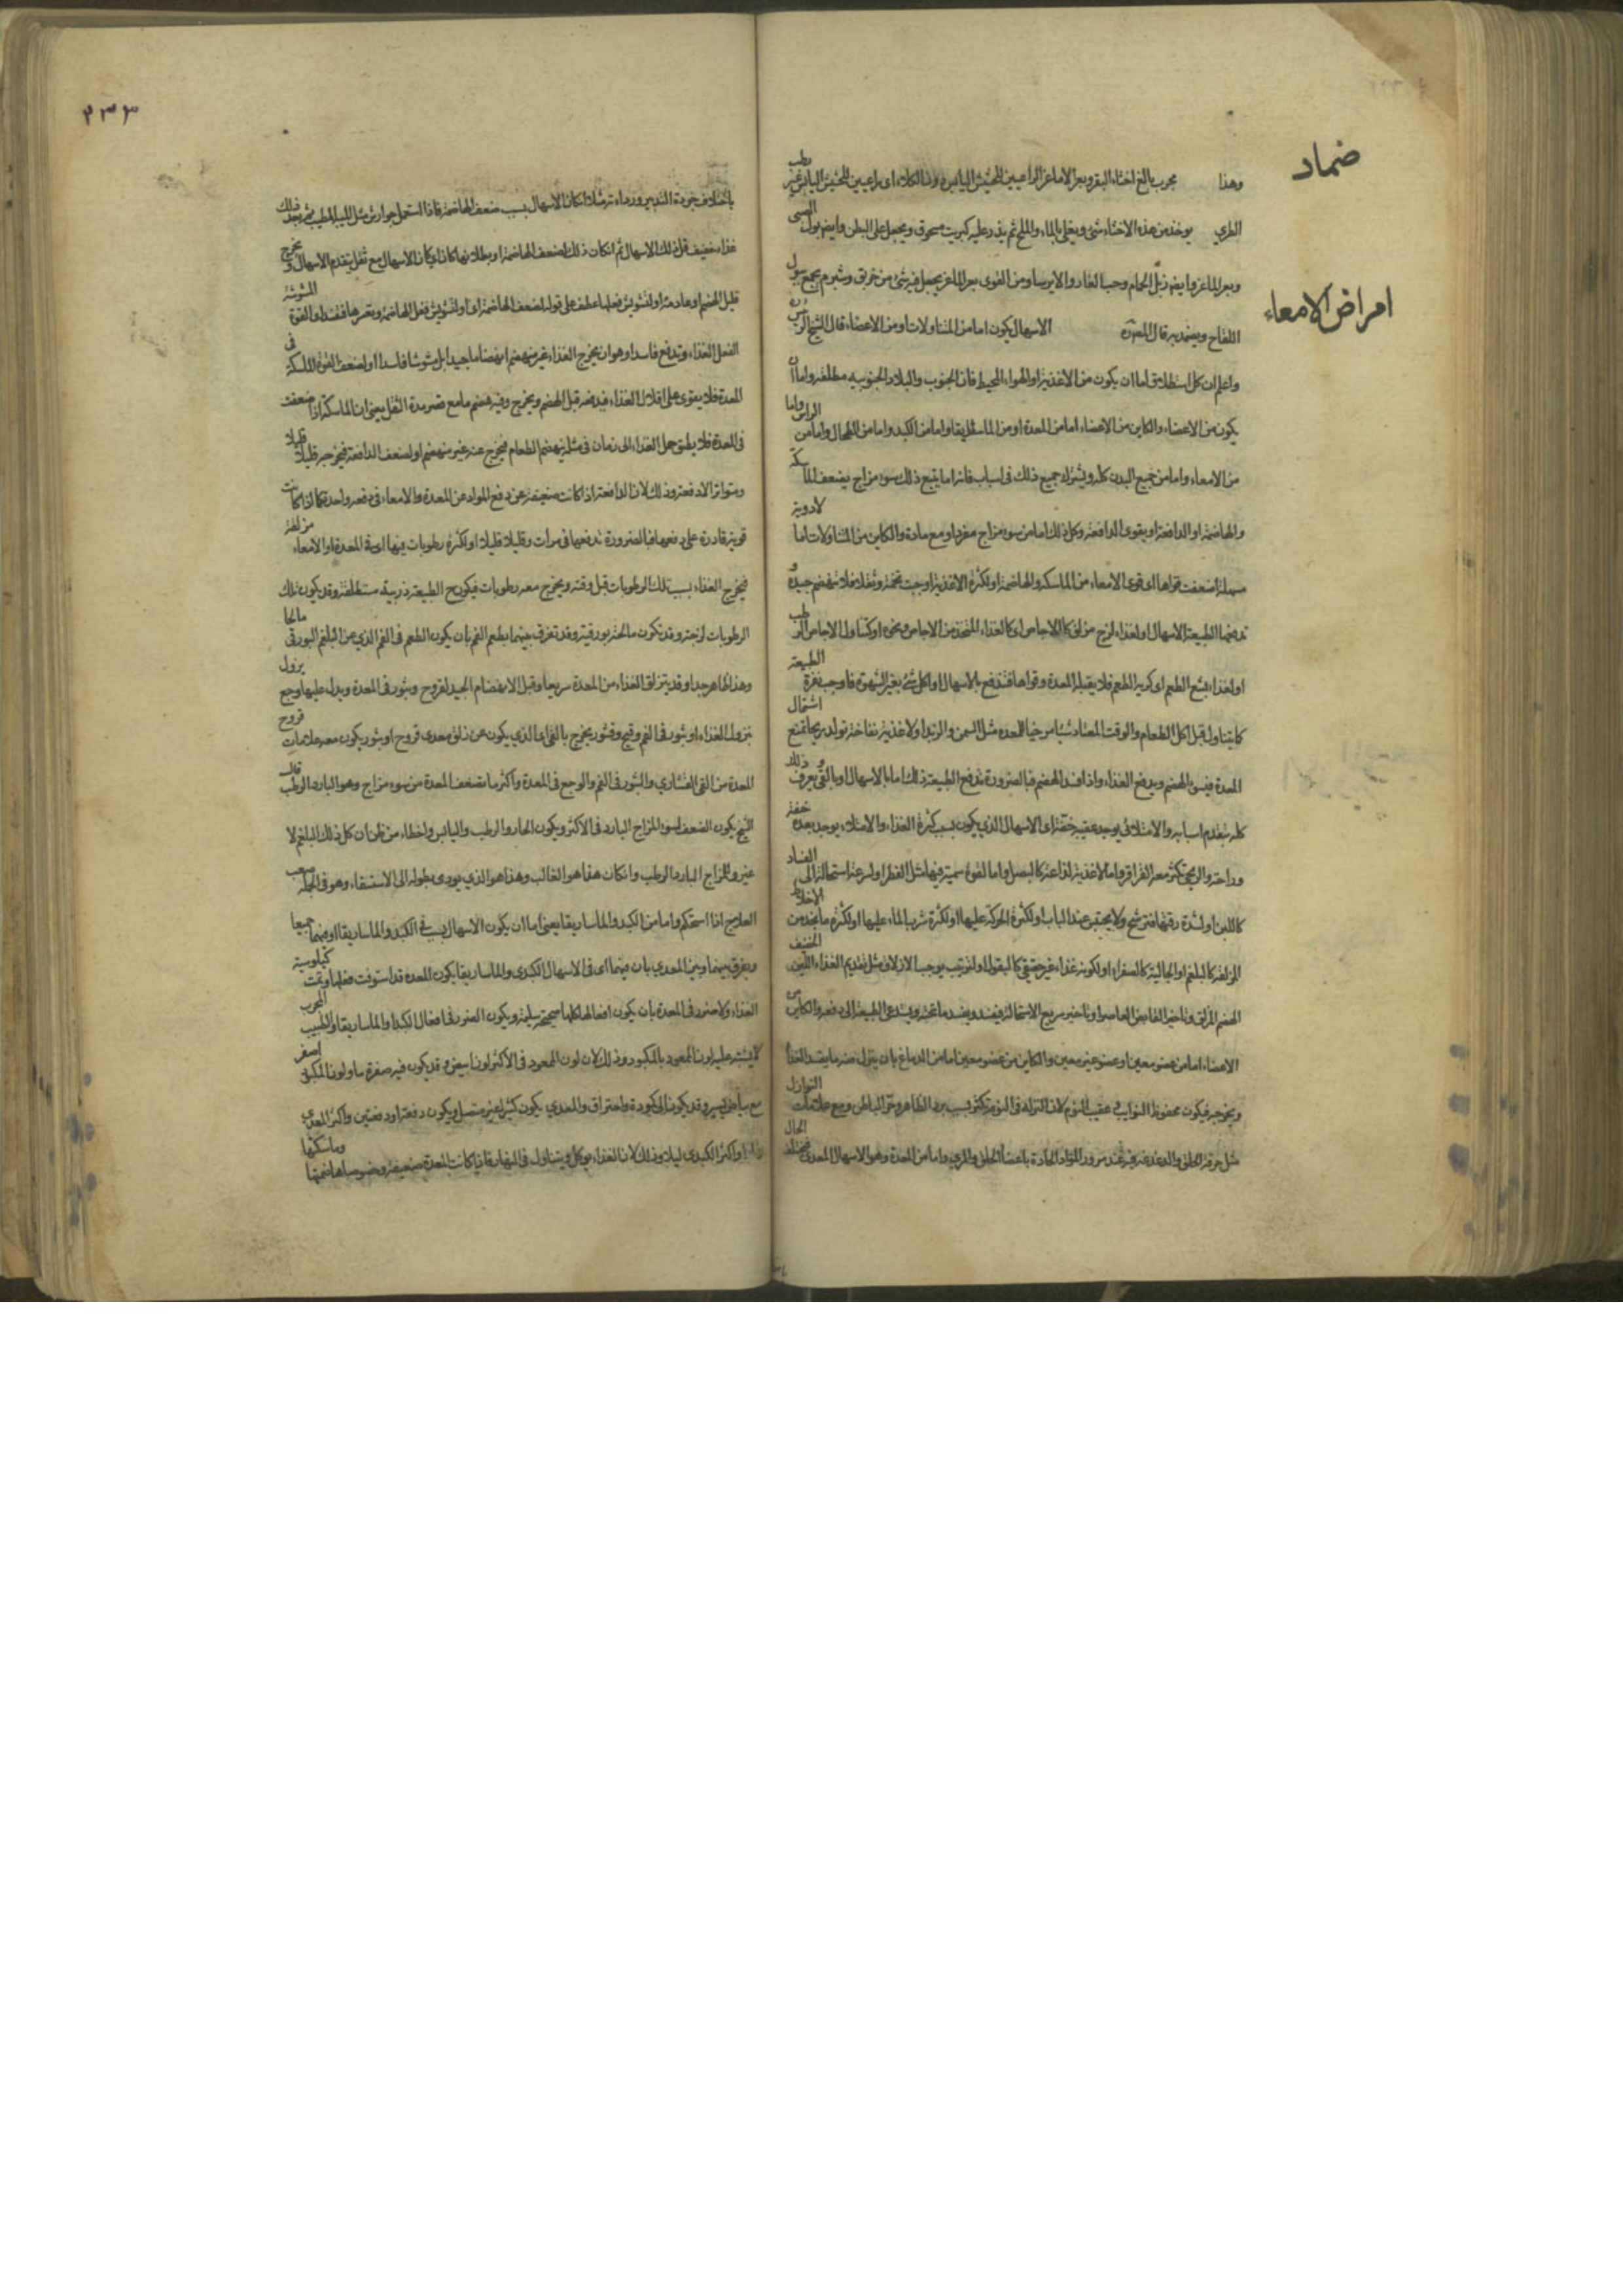 ضماد
وهذا مجرب بالغ اخثاء البقر وبعر الاماعز الراعيين للحشيش اليابس دون الكلاء اى راعيين للحشيش اليابس غير رطب
الطري يوخذ من هذه الاخثاء شئ ويغلى بالماء والملح ثم يذر عليه كبريت مسحوق ويجعل على البطن وايضا بول الصبى
وبعر الماعز وايضا زبل الحمام وحب الغار والايرسا ومن القوى بعر الماعز يجعل فيه شئ من خربق وشبرم يجمع ببول
امراض الامعاء
اللقاح ويضمد به قال المصنف الاسهال يكون اما من المتناولات او من الاعضاء قال الشيخ الرئيس
واعلم ان كل استطلاق اما ان يكون من الاغذية او الهواء المحيط فان الجنوب والبلاد الجنوبيه مطلقه واما ان
يكون من الاعضاء والكاين من الاعضاء اما من المعدة او من الماساريقا واما من الكبد واما من الطحال واما من الراس واما
من الامعاء واما من جميع البدن كله ويشترك جميع ذلك فى اسباب فانه اما يتبع ذلك سوء مزاج يضعف الماسكة
والهاضمة او الدافعة او يقوى الدافعة وكل ذلك اما من سوء مزاج مفرد او مع مادة والكاين من المتناولات اما لادوية
مسهلة اضعفت قواها اى قوى الامعاء من الماسكه والهاضمة او لكثرة الاغذية اوجبت تخمة وثقلا فلا تنهضم جيدة و
تدفعها الطبيعة بالاسهال او لغذاء لزج مزلق كالاجاص او كالغذاء المتخذ من الاجاص ونحوه او كتناول الاجاص الرطب
او لغذاء بشع الطعم اى كريه الطعم فلا يقبله المعدة وقواها فتدفع بالاسهال او اكل شئ بغير الشهوة فاوجب نفرة الطبيعة
كما يتناول قبل اكل الطعام والوقت المعتاد شيئا مرخيا للمعده مثل السمن والزبد او لاغذية نفاخة تولد ريحا تمنع اشتمال
المعدة فيسئ الهضم ويدفع الغذاء واذا فسد الهضم فبالضرورة تدفع الطبيعة ذلك اما بالاسهال او بالقئ ويعرف ذلك
كله بتقدم اسبابه والامتلائى يوجد عقيبه خفة اى الاسهال الذى يكون بسبب كثرة الغذاء والامتلاء يوجد بعده خفة
وراحة والريحى تكثر معه القراقر واما لاغذية لذاعة كالبصل واما لقوة سمية فيها مثل الفطر او لسرعة استحالة الى الفساد
كاللبن او لشدة رقتها فترشح ولا يحتبس عند الباب او لكثرة الحركة عليها او لكثرة شرب الماء عليها او لكثرة ما تجد من الاخلاط
المزلقه كالبلغم او الجالية كالصفراء او لكونه غذاء غير حقيقى كالبقول او لترتيب يوجب الازلاق مثل تقديم الغذاء اللين الخفيف
الهضم المزلق وتاخير القابض العاصر او تاخير سريع الاستحالة فيفسد ويفسد ما تحته ويستدعى الطبيعة الى دفعه والكاين من
الاعضاء اما من عضو معين او عضو غير معين والكاين من عضو معين اما من الدماغ بان ينزل منه ما يفسد الغذاء
ويخرجه فيكون محفوظ النوايب عقيب النوم لان النزله فى النوم تكثر بسبب برد الظاهر وحر الباطن ومع علامات النوازل
مثل حرقة الحلق والدغدغه فيه عند مرور المواد الحادة باعضاء الحلق والمرى واما من المعدة وهو الاسهال المعدى فيختلف الحال
٢٣٣
باختلاف جودة التدبير ورداءته مثلا اذا كان الاسهال بسبب ضعف الهاضمة فاذا استعمل جوارش مثل المسك المطيب ثم بعد ذلك
غذاء خفيف قل ذلك الاسهال ثم ان كان ذلك لضعف الهاضمة او بطلانها كان اى كان الاسهال مع ثقل يتقدم الاسهال ويخرج
قبل الهضم او عادمه او لتشويش فعلها عطف على قوله لضعف الهاضمة اى او لتشويش فعل الهاضمة وتغيرها فتفسد او القوة المشوشة
الفعل الغذاء وتدفع فاسدا وهو ان يخرج الغذاء غير منهضم انهضاما جيدا بل مشوشا فاسدا او لضعف القوة الماسكة فى
المعدة فلا يقوى على اقلال الغذاء فيدفعه قبل الهضم ويخرج وفيه هضم ما مع قصر مدة الثقل يعنى ان الماسكة اذا ضعفت
فى المعدة فلا يطيق حمل الغذاء الى زمان فى مثله ينهضم الطعام فيخرج عنه غير منهضم او لضعف الدافعة فيخرجه قليلا قليلا
ومتواترا لا دفعة وذلك لان الدافعة اذا كانت ضعيفة عن دفع المواد عن المعدة والامعاء فى دفعه واحدة كما اذا كانت
قوية قادرة على دفعها فبالضرورة تدفعها فى مرات وقليلا قليلا او لكثرة رطوبات فيها اى فى المعدة او الامعاء مزلقة
فيخرج الغذاء بسبب تلك الرطوبات قبل وقته ويخرج معه رطوبات فيكون ح الطبيعة ذربية مستطلقة وقد يكون تلك
الرطوبات لزجة وقد تكون مالحة بورقية وقد تفرق بينهما بطعم الفم بان يكون الطعم فى الفم الذي عن البلغم البورقى مالحا
وهذا ظاهر جدا وقد ينزلق الغذاء من المعدة سريعا وقبل الانهضام الجيد لقروح وبثور فى المعدة ويدل عليها وجع يزول
بنزول الغذاء او بثور فى الفم وقيح وقشور يخرج بالقئ اما الذي يكون عن زلق معدى قروح او بثور يكون معه علامات قروح
المعدة من القئ القشاري والبثور فى الفم والوجع فى المعدة واكثر ما تضعف المعدة من سوء مزاج وهو البارد الرطب قال
الشيخ يكون الضعف لسوء المزاج البارد فى الاكثر ويكون الحار والرطب واليابس واخطاء من ظن ان كل ذلك البلغم لا
غير والمزاج البارد الرطب وان كان هذا هو الغالب وهذا هو الذي يودى بطوله الى الاستسقاء وهو فى الجملة صعب
العلاج اذا استحكم واما من الكبد والماساريقا يعنى اما ان يكون الاسهال بسبب فى الكبد والماساريقا او فيهما جميعا
ويفرق بينهما وبين المعدي بان فيهما اى فى الاسهال الكبدى والماساريقا يكون المعده قد استوفت فعلها وتمت كيلوسية
الغذاء ولا ضرر فى المعدة بان يكون افعالها كلها صحيحة سليمة ويكون الضرر فى افعال الكبد او الماساريقا والطبيب المجرب
لا يشتبه عليه لون الممعود بالمكبود وذلك لان لون الممعود فى الاكثر لونا ابيض وقد يكون فيه صفرة ما ولون المكبود اصفر
مع بياض يسير وقد يكون الى كمودة واحتراق والمعدي يكون كثيرا غير متصل ويكون دفعة او دفعتين واكثر المعدي
نهارا واكثر الكبدى ليلا وذلك لان الغذاء يوكل ويتناول فى النهار فاذا كانت المعدة ضعيفة وخصوصا هاضمتها وماسكتها